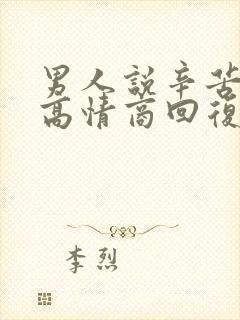 男人說辛苦
高情商回復
李烈